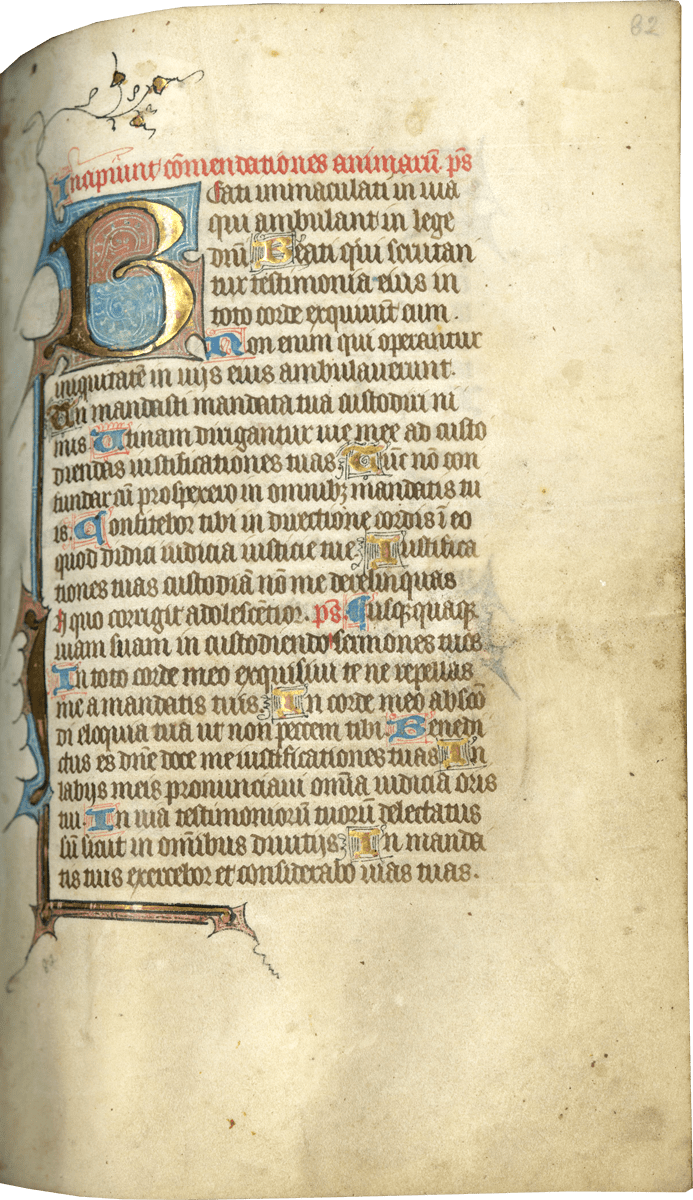 82
Incipiunt cōmendationes animarū. pš
Beati immaculati in uia
qui ambulant in lege
dnī. Beati qui scrutan
tur testimonia eius in
toto corde exquirūt eum.
Non enim qui operantur
iniquitatē in uijs eius ambulauerunt.
Tu mandasti mandata tua custodiri ni
mis Utinam dirigantur uie mee ad custo
diendas iustificationes tuas Tūc nō con
fundar cū prospexero in omnibꝫ mandatis tu
is. Confitebor tibi in directione cordis ī eo
quod didici iudicia iusticie tue. Iustifica
tiones tuas custodiā nō me derelinquas
In quo corrigit adolescētior. pš. Usqꝫquaqꝫ
uiam suam in custodiendo sermones tuos
In toto corde meo exquisiui te ne repellas
me a mandatis tuis. In corde meo abscō
di eloquia tua ut non peccem tibi Benedi
ctus es dnē doce me iustificationes tuas In
labijs meis pronunciaui omīa iudicia oris
tui. In uia testimoniorū tuorū delectatus
sū sicut in omībus diuitijs In manda
tis tuis exercebor et considerabo uias tuas.